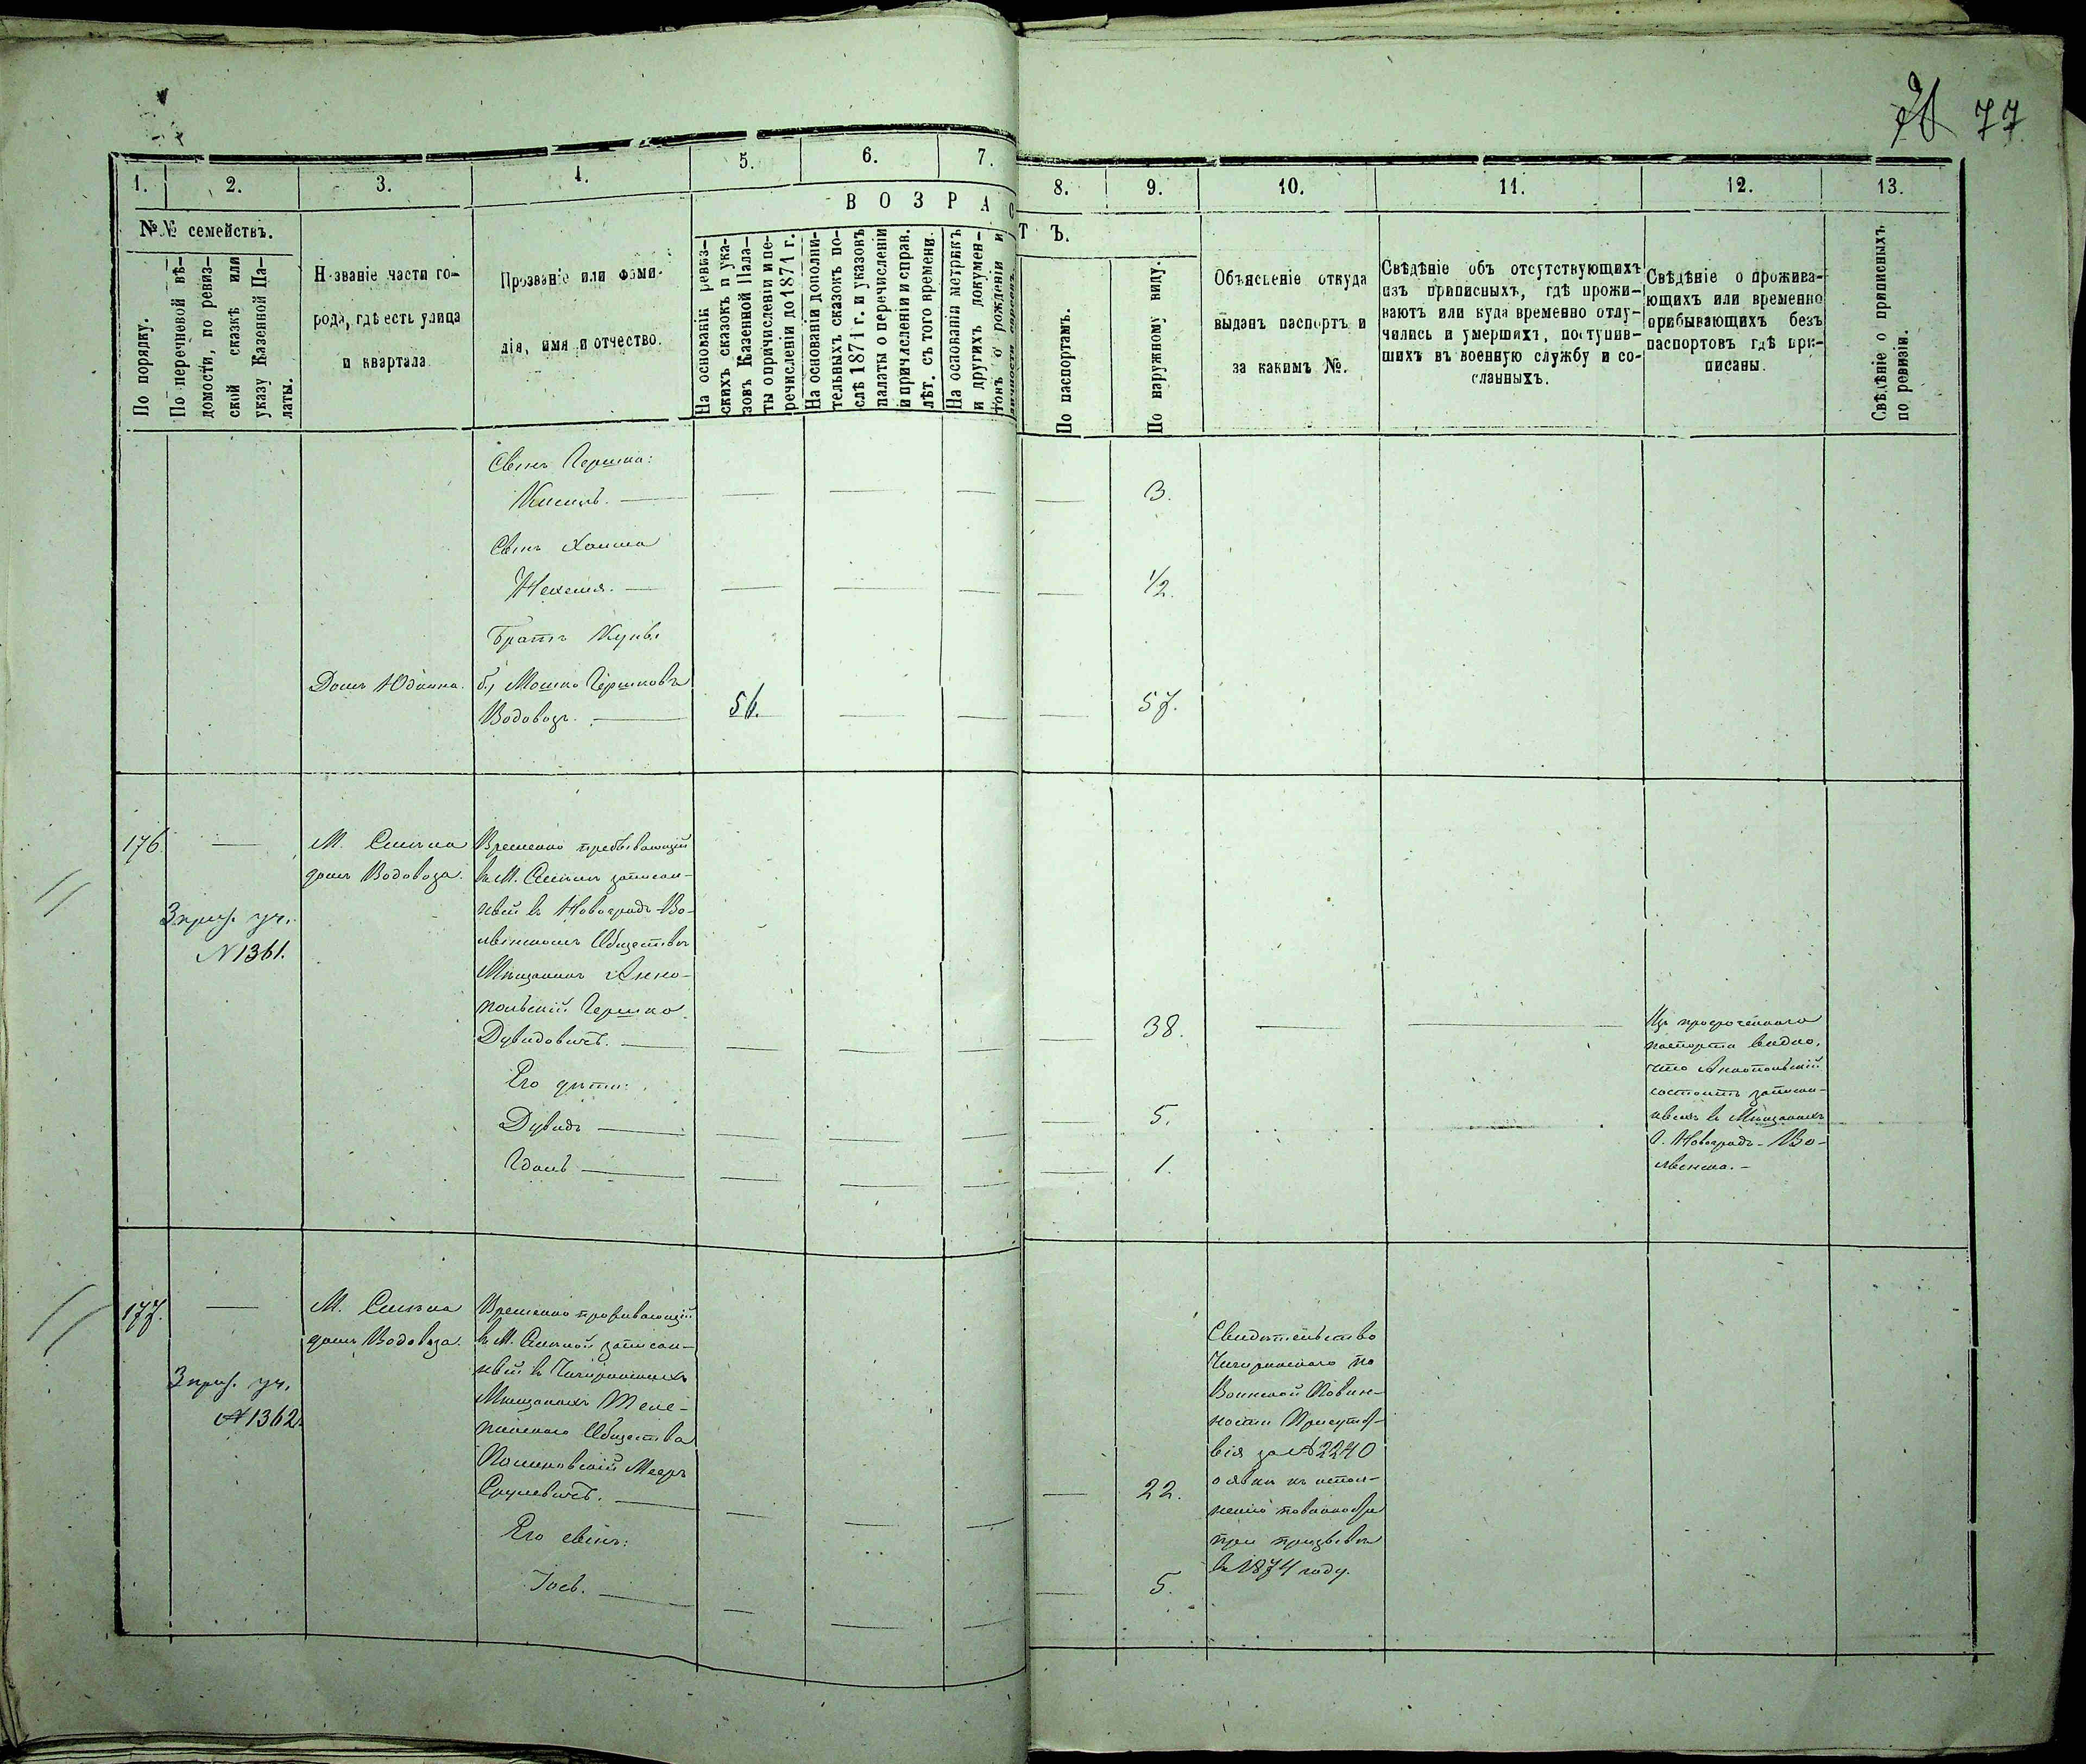 77
1. 2. 3. 4. 5. 6. 7. 8. 9. 10. 11. 12. 13.
№№ семействъ.
По порядку.
По перечневой вѣ-
домости, по ревиз-
ской сказкѣ или
указу Казенной Па-
латы.
Названіе части го-
рода, гдѣ есть улица
и квартала
Прозваніе или фами-
лія, имя и отчество.
ВОЗРАСТЪ.
На основаніи ревиз-
скихъ сказокъ и ука-
зовъ Казенной Пала-
ты о причисленіи и пе-
речисленіи до 1871 г.
На основаніи дополни-
тельныхъ сказокъ по-
слѣ 1871 г. и указовъ
палаты о перечисленіи
и причисленіи и справ.
лѣт. съ того времени.
На основаніи метрикъ
и других докумен-
товъ о рожденіи и
По паспортамъ.
По наружному виду.
Объясненіе откуда
выданъ паспортъ и
за какимъ №.
Свѣдѣніе объ отсутствующихъ
изъ приписныхъ, гдѣ прожи-
ваютъ или куда временно отлу-
чились и умершихъ, поступив-
шихъ въ военную службу и со-
сланныхъ.
Свѣдѣніе о прожива-
ющихъ или временно
прибывающихъ безъ
паспортовъ гдѣ при-
писаны.
Свѣдѣніе о приписныхъ
по ревизіи.
Сынъ Гершка:
3.
Сынъ Хаима
Нехемя. 1/2.
Братъ
Домъ Юдкина. б., Мошко Гершковъ
Водовозъ. 56. 57.
176
М. Смѣла
домъ Водовоза.
3 приз. уч.
№ 1361.
Временно пребывающій
въ М. Смѣлѣ записан-
ный въ Новоградъ-Во-
лынскомъ Обществѣ
Мѣщанинъ Анно-
польскій Гершко
Дувидовичъ. 38.
Его дѣти:
Дувидъ 5.
1.
Изъ просроченнаго
паспорта видно,
что Аннопольскій
состоитъ записан-
нымъ въ Мѣщанахъ
г. Новоградъ-Во-
лынска.
177.
М. Смѣла
домъ Водовоза.
3 приз. уч.
№ 1362.
Временно проживающій
въ М. Смѣлой записан-
ный въ Чигиринскихъ
Мѣщанахъ Теле-
пинскаго Общества
Мееръ
Срулевичъ. 22.
Его сынъ:
Іось. 5.
Свидѣтельство
Чигиринскаго по
Воинской Повин-
ности Присутс-
вія за № 2240
о явкѣ къ испол-
ненію повинности
при призывѣ
въ 1874 году.